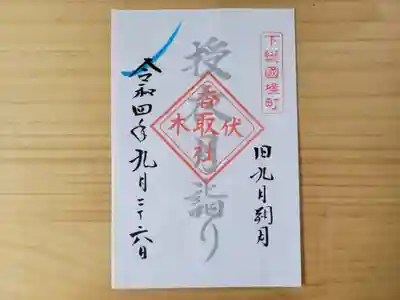 下総國境町
旧九月朔月
授衣月詣り
伏木
香取社
令和四年九月二十六日